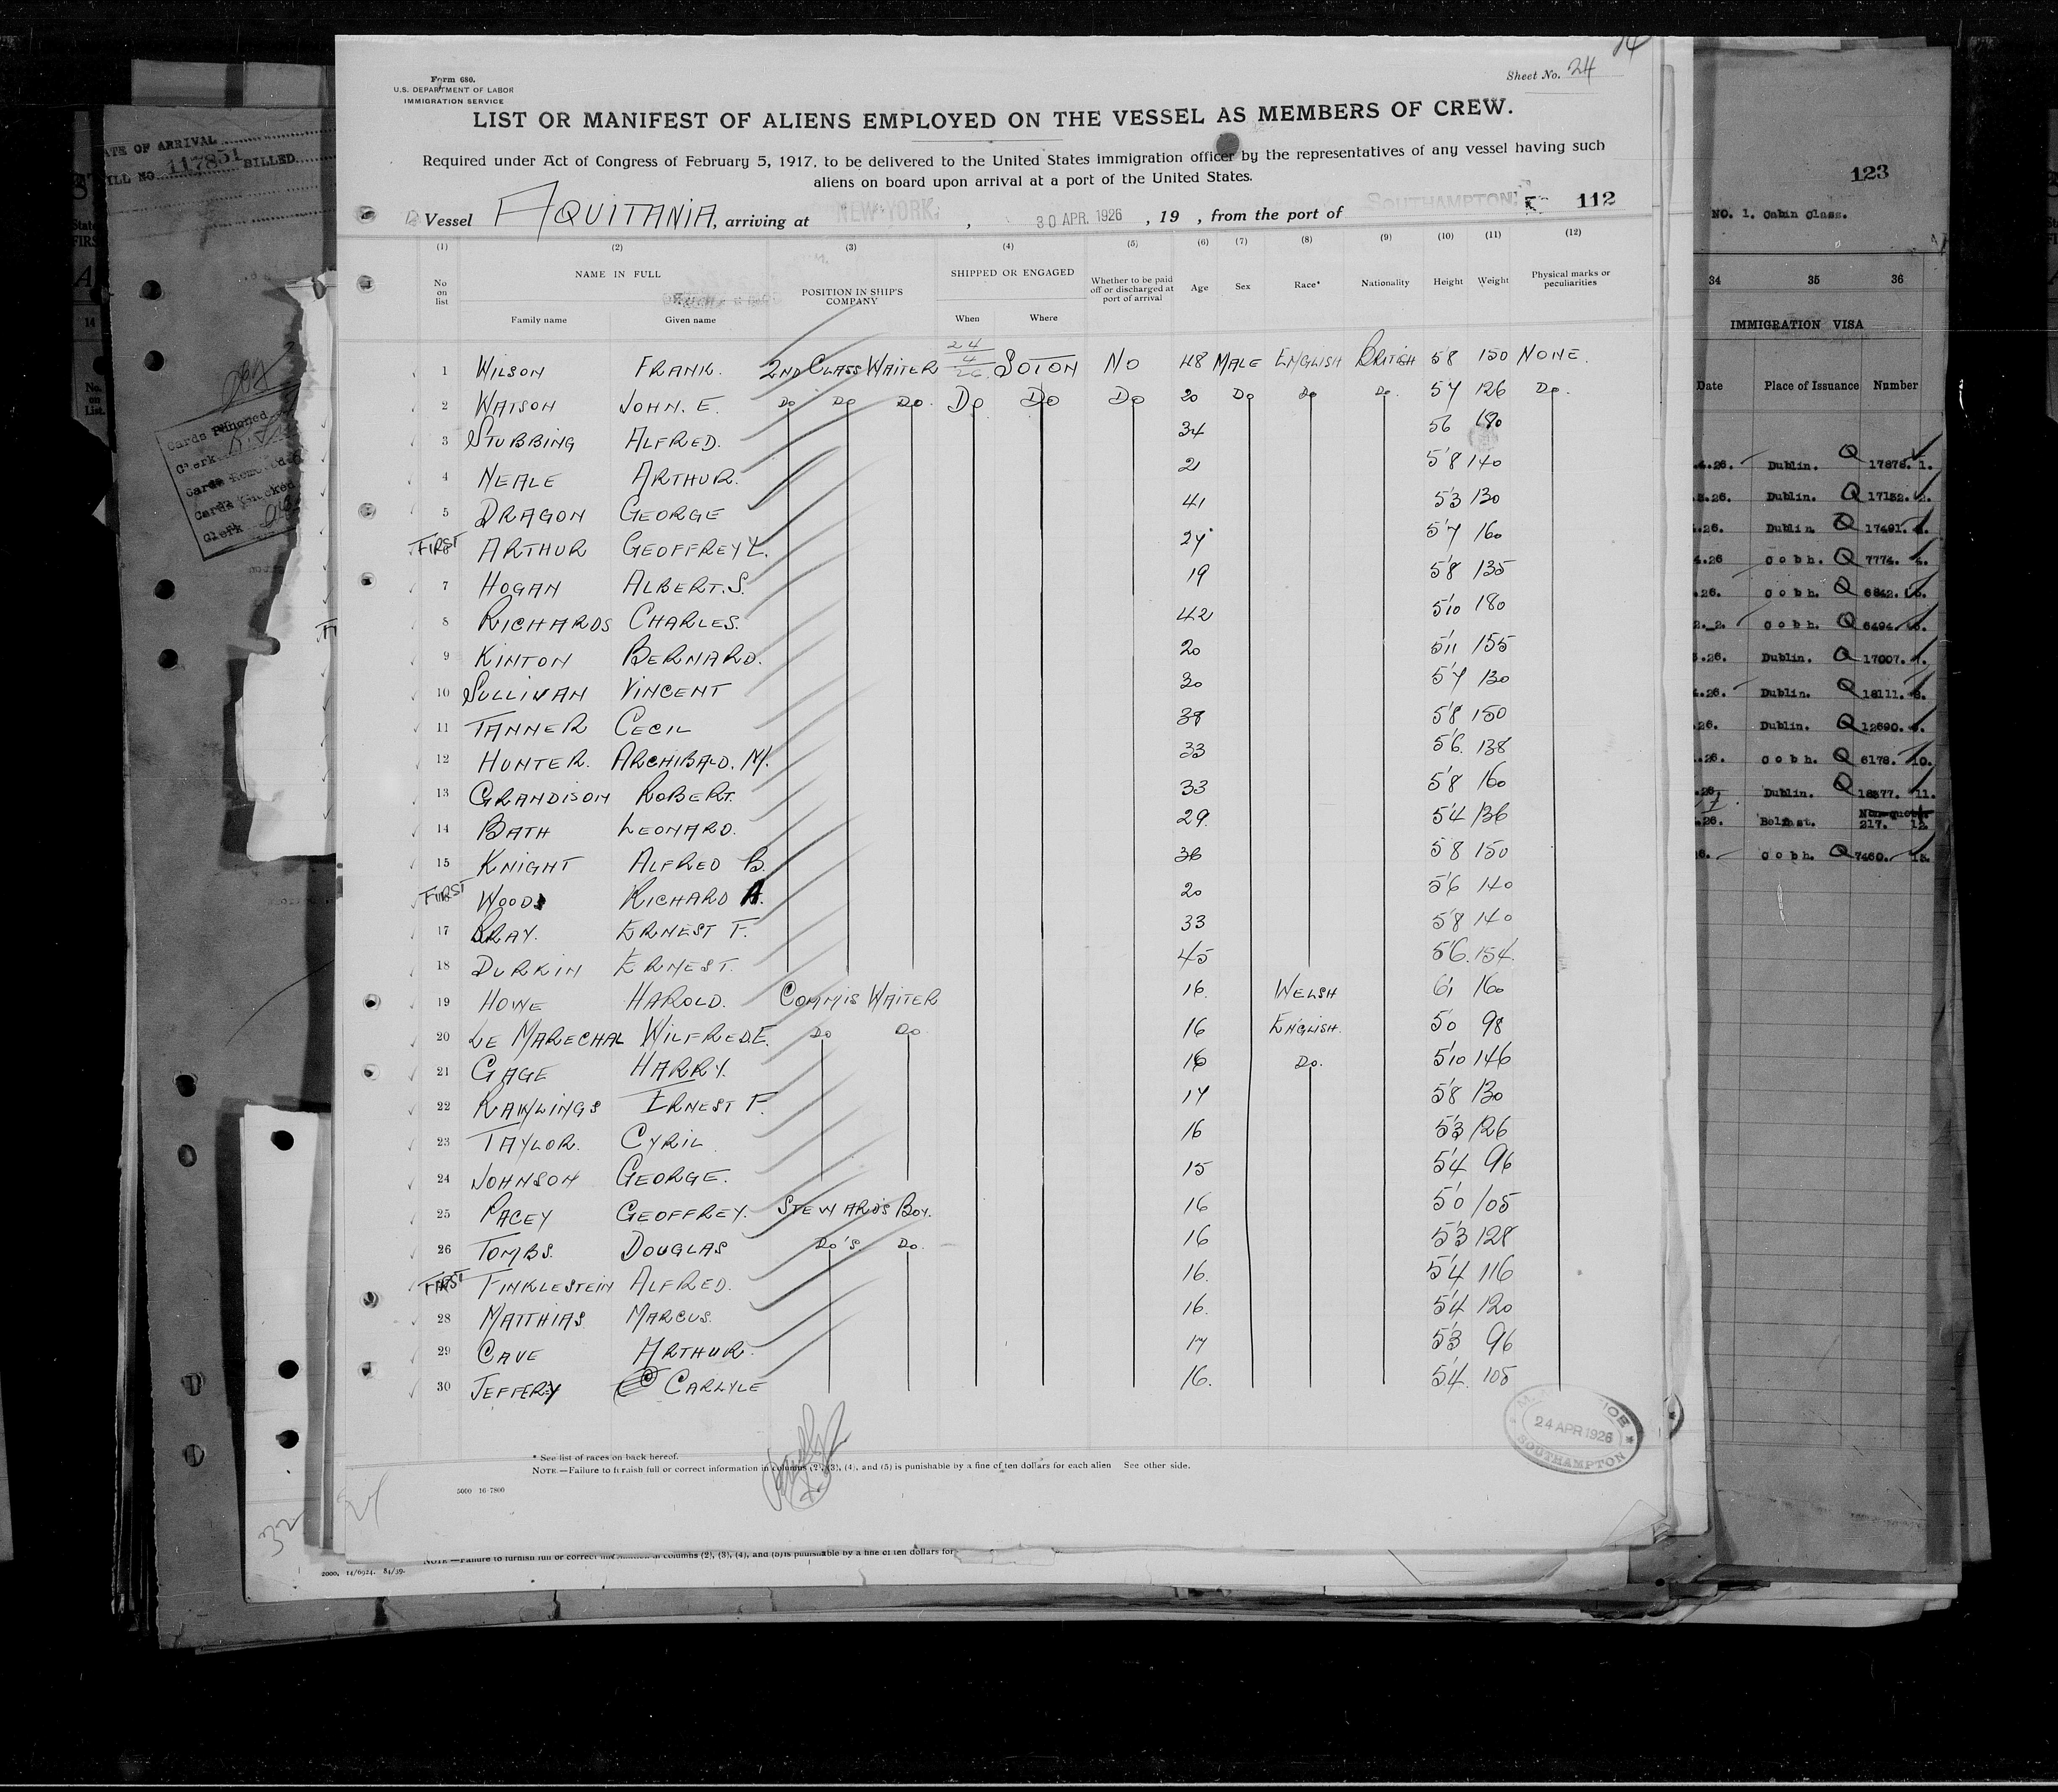 Form 680.
U.S. DEPARTMENT OF LABOR
IMMIGRATION SERVICE
Sheet No. 24
LIST OR MANIFEST OF ALIENS EMPLOYED ON THE VESSEL AS MEMBERS OF CREW.
Required under Act of Congress of February 5, 1917, to be delivered to the United States immigration officer by the representatives of any vessel having such
aliens on board upon arrival at a port of the United States.
Vessel AQUITANIA, arriving at NEW YORK, 30 APR. 1926, 19 , from the port of SOUTHAMPTON 112
(1) (2) (3) (4) (5) (6) (7) (8) (9) (10) (11) (12)
No on list NAME IN FULL Family name Given name POSITION IN SHIP'S COMPANY SHIPPED OR ENGAGED When Where Whether to be paid off or discharged at port of arrival Age Sex Race* Nationality Height Weight Physical marks or peculiarities
1 WILSON FRANK. 2ND CLASS WAITER 24/4/26 SOTON NO 48 MALE ENGLISH BRITISH 5'8 150 NONE.
2 WATSON JOHN. E. DO DO DO. DO DO DO 20 DO DO DO. 5'7 126 DO.
3 STUBBING ALFRED. 34 5'6 180
4 NEALE ARTHUR. 21 5'8 140
5 DRAGON GEORGE 41 5'3 130
FIRST ARTHUR GEOFFREY L. 27 5'7 160
7 HOGAN ALBERT. S. 19 5'8 135
8 RICHARDS CHARLES. 42 5'10 180
9 KINTON BERNARD. 20 5'11 155
10 SULLIVAN VINCENT 30 5'7 130
11 TANNER CECIL 38 5'8 150
12 HUNTER. ARCHIBALD. M. 33 5'6. 138
13 GRANDISON ROBERT. 33 5'8 160
14 BATH LEONARD. 29. 5'4 136
15 KNIGHT ALFRED B. 36 5'8 150
FIRST WOODS RICHARD A. 20 5'6 140
17 BRAY. ERNEST F. 33 5'8 140
18 DURKIN ERNEST. 45 5'6. 154.
19 HOWE HAROLD. COMMIS WAITER 16. WELSH 6'1 160
20 LE MARECHAL WILFRED.E. DO DO 16 ENGLISH. 5'0 98
21 GAGE HARRY. 16 DO. 5'10 146
22 RAWLINGS ERNEST F. 17 5'8 130
23 TAYLOR. CYRIL 16 5'3 126
24 JOHNSON GEORGE. 15 5'4 96
25 PACEY GEOFFREY. STEWARDS BOY. 16 5'0 105
26 TOMBS. DOUGLAS DO'S. DO. 16 5'3 128
FIRST FINKLESTEIN ALFRED. 16. 5'4 116
28 MATTHIAS MARCUS. 16. 5'4 120
29 CAVE ARTHUR. 17 5'3 96
30 JEFFERY CARLYLE 16. 5'4. 105
24 APR 1926
SOUTHAMPTON
* See list of races on back hereof.
NOTE.—Failure to furnish full or correct information in columns (2), (3), (4), and (5) is punishable by a fine of ten dollars for each alien See other side.
5000 16-7800
32
NOTE.—Failure to furnish full or correct information in columns (2), (3), (4), and (5) is punishable by a fine of ten dollars for
2000. 14/6924. 84/39.
DATE OF ARRIVAL
BILL NO. 117851 BILLED
Cards Punched
Clerk
Cards
Cards Checked
Clerk
123
NO. 1. Cabin Class.
34 35 36
IMMIGRATION VISA
Date Place of Issuance Number
.4.26. Dublin. Q 17878. 1.
.26. Dublin. Q 17152. 2.
.26. Dublin. Q 17491.
.26 Cobh. Q 7774. 4.
.26. Cobh. Q 6842. 5.
Cobh. Q 6494.
.26. Dublin. Q 17007. 7.
.26. Dublin. Q 18111. 8.
.26. Dublin. Q 12690. 9.
.26. Cobh. Q 6178. 10.
.26 Dublin. Q 18377. 11.
.26. Belfast. Non-quota 217. 12.
Cobh. Q 7460. 13.